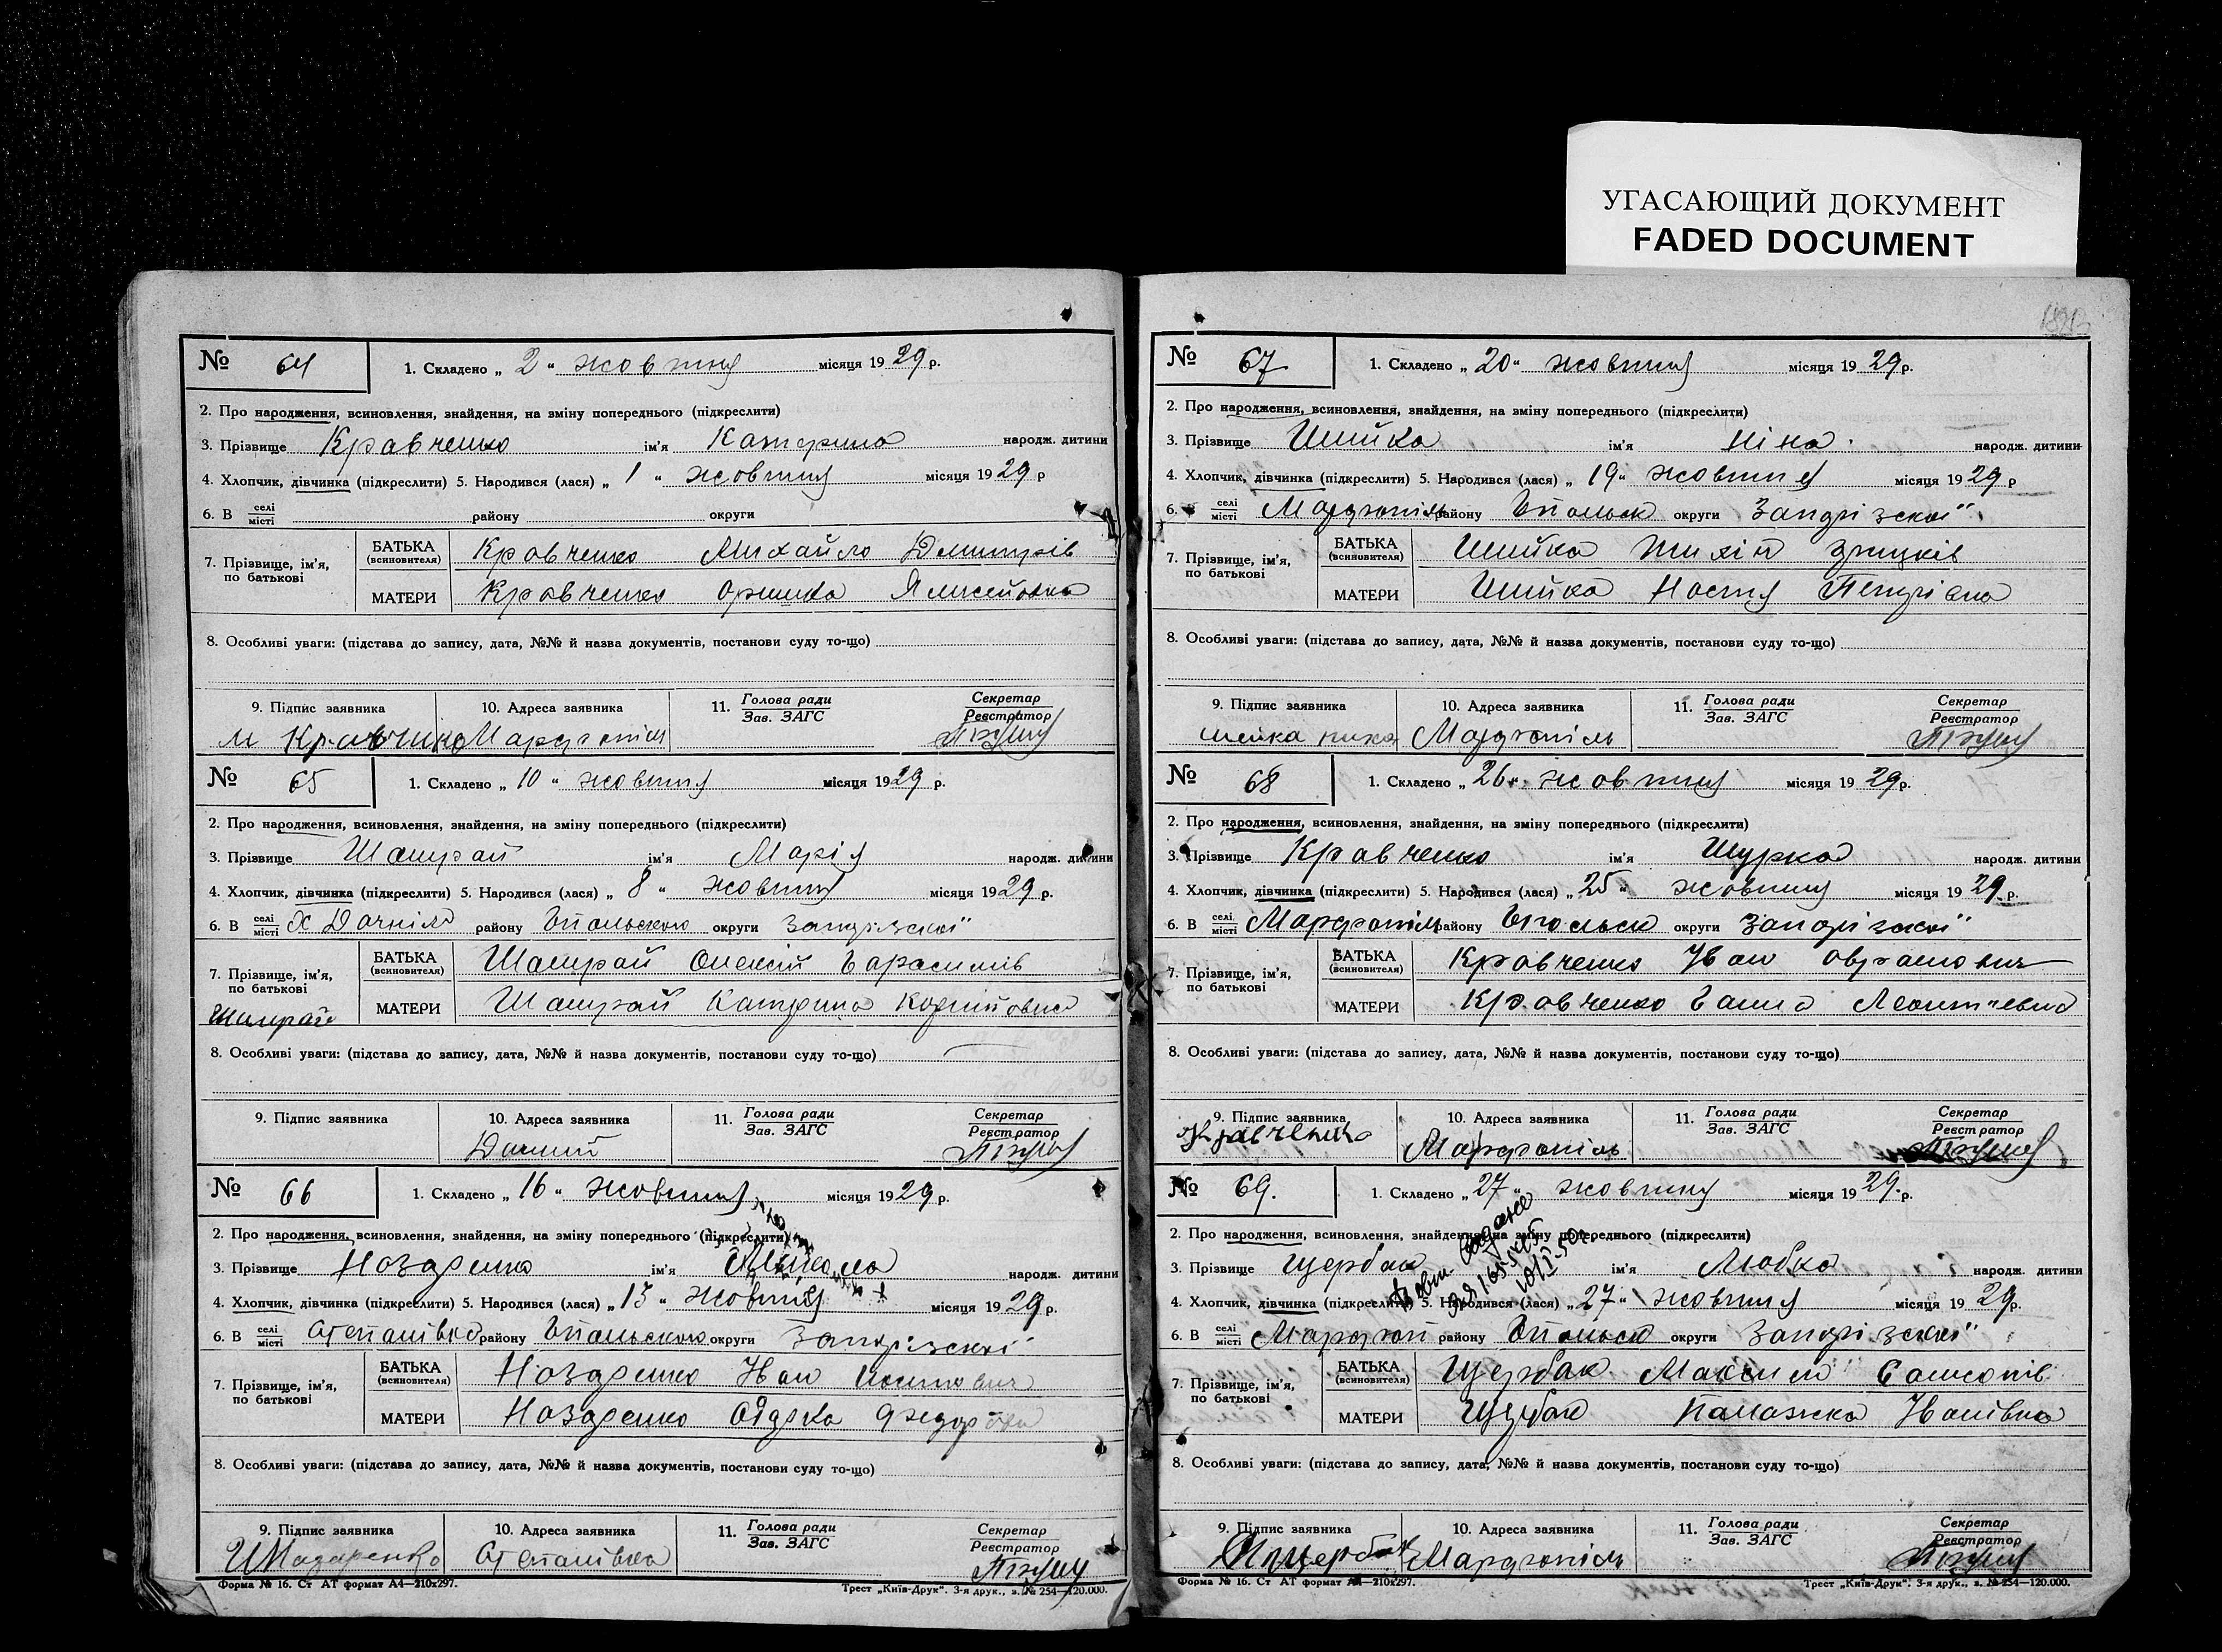 УГАСАЮЩИЙ ДОКУМЕНТ
FADED DOCUMENT
№ 64 1. Складено „ 2 “ жовтня місяця 19 29 р.
2. Про народження, всиновлення, знайдення, на зміну попереднього (підкреслити)
3. Прізвище Кравченко ім'я Катерина народж. дитини
4. Хлопчик, дівчинка (підкреслити) 5. Народився (лася) „ 1 “ жовтня місяця 19 29 р
6. В селі місті району округи
7. Прізвище, ім'я, по батькові БАТЬКА (всиновителя) Кравченко Михайло Дмитрів
МАТЕРИ Кравченко Оришка
8. Особливі уваги: (підстава до запису, дата, №№ й назва документів, постанови суду то-що)
9. Підпис заявника 10. Адреса заявника 11. Голова ради Зав. ЗАГС Секретар Реєстратор
М Кравченко Марфопіль
№ 65 1. Складено „ 10 “ жовтня місяця 19 29 р.
2. Про народження, всиновлення, знайдення, на зміну попереднього (підкреслити)
3. Прізвище Шамрай ім'я Марія народж. дитини
4. Хлопчик, дівчинка (підкреслити) 5. Народився (лася) „ 8 “ жовтня місяця 19 29 р.
6. В селі місті Х району округи
7. Прізвище, ім'я, по батькові БАТЬКА (всиновителя) Шамрай Олексій Гарасимів
Шамрай МАТЕРИ Шамрай Катерина
8. Особливі уваги: (підстава до запису, дата, №№ й назва документів, постанови суду то-що)
9. Підпис заявника 10. Адреса заявника 11. Голова ради Зав. ЗАГС Секретар Реєстратор
№ 66 1. Складено „ 16 “ жовтня місяця 19 29 р.
2. Про народження, всиновлення, знайдення, на зміну попереднього (підкреслити)
3. Прізвище Назаренко ім'я Микола народж. дитини
4. Хлопчик, дівчинка (підкреслити) 5. Народився (лася) „ 15 “ жовтня місяця 19 29 р.
6. В селі місті Степанівка району округи
7. Прізвище, ім'я, по батькові БАТЬКА (всиновителя) Назаренко Иван
МАТЕРИ Назаренко Одарка
8. Особливі уваги: (підстава до запису, дата, №№ й назва документів, постанови суду то-що)
9. Підпис заявника 10. Адреса заявника 11. Голова ради Зав. ЗАГС Секретар Реєстратор
И Назаренко Степанівка
Форма № 16. Ст АТ формат А4—210х297. Трест „Київ-Друк“. 3-я друк., з. № 254—120.000.
№ 67 1. Складено „ 20 “ жовтня місяця 19 29 р.
2. Про народження, всиновлення, знайдення, на зміну попереднього (підкреслити)
3. Прізвище Шийка ім'я Ніна народж. дитини
4. Хлопчик, дівчинка (підкреслити) 5. Народився (лася) „ 19 “ жовтня місяця 19 29 р
6. В селі місті Марфопіль району округи
7. Прізвище, ім'я, по батькові БАТЬКА (всиновителя) Шийка Грицьків
МАТЕРИ Шийка Настя Петрівна
8. Особливі уваги: (підстава до запису, дата, №№ й назва документів, постанови суду то-що)
9. Підпис заявника 10. Адреса заявника 11. Голова ради Зав. ЗАГС Секретар Реєстратор
Марфопіль
№ 68 1. Складено „ 26 “ жовтня місяця 19 29 р.
2. Про народження, всиновлення, знайдення, на зміну попереднього (підкреслити)
3. Прізвище Кравченко ім'я Шурка народж. дитини
4. Хлопчик, дівчинка (підкреслити) 5. Народився (лася) „ 25 “ жовтня місяця 19 29 р.
6. В селі місті Марфопіль району округи
7. Прізвище, ім'я, по батькові БАТЬКА (всиновителя) Кравченко Иван
МАТЕРИ Кравченко Ганна
8. Особливі уваги: (підстава до запису, дата, №№ й назва документів, постанови суду то-що)
9. Підпис заявника 10. Адреса заявника 11. Голова ради Зав. ЗАГС Секретар Реєстратор
Кравченко Марфопіль
№ 69. 1. Складено „ 27 “ жовтня місяця 19 29 р.
2. Про народження, всиновлення, знайдення, на зміну попереднього (підкреслити)
3. Прізвище Щербак ім'я Любка народж. дитини
4. Хлопчик, дівчинка (підкреслити) 5. Народився (лася) „ 27 “ жовтня місяця 19 29 р.
6. В селі місті Марфопіл району округи
7. Прізвище, ім'я, по батькові БАТЬКА (всиновителя) Щербак Максим Самсонів
МАТЕРИ Щербак Палажка Иванівна
8. Особливі уваги: (підстава до запису, дата, №№ й назва документів, постанови суду то-що)
9. Підпис заявника 10. Адреса заявника 11. Голова ради Зав. ЗАГС Секретар Реєстратор
Щербак Марфопіль
Форма № 16. Ст АТ формат А4—210х297. Трест „Київ-Друк“. 3-я друк., з. № 254—120.000.